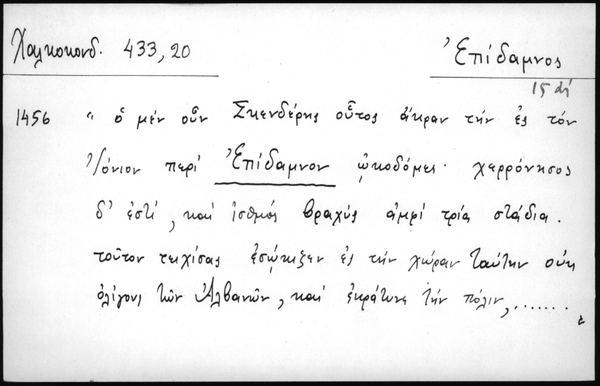 Χαλκοκονδ. 433,20
Ἐπίδαμνος
15 αἰ
1456 " ὁ μὲν οὖν Σκενδέρης οὗτος ἄκραν τήν ἐς τόν
Ἰόνιον περί Ἐπίδαμνον ᾠκοδόμει· χερρόνησος
δ' ἐστί, καί ἰσθμός βραχύς ἀμφί τρία στάδια.
τοῦτον τειχίσας ἐσῴκιξεν ἐς τήν χώραν ταύτην οὐκ
ὀλίγους τῶν Ἀλβανῶν, καί ἐκράτυνε τήν πόλιν,......